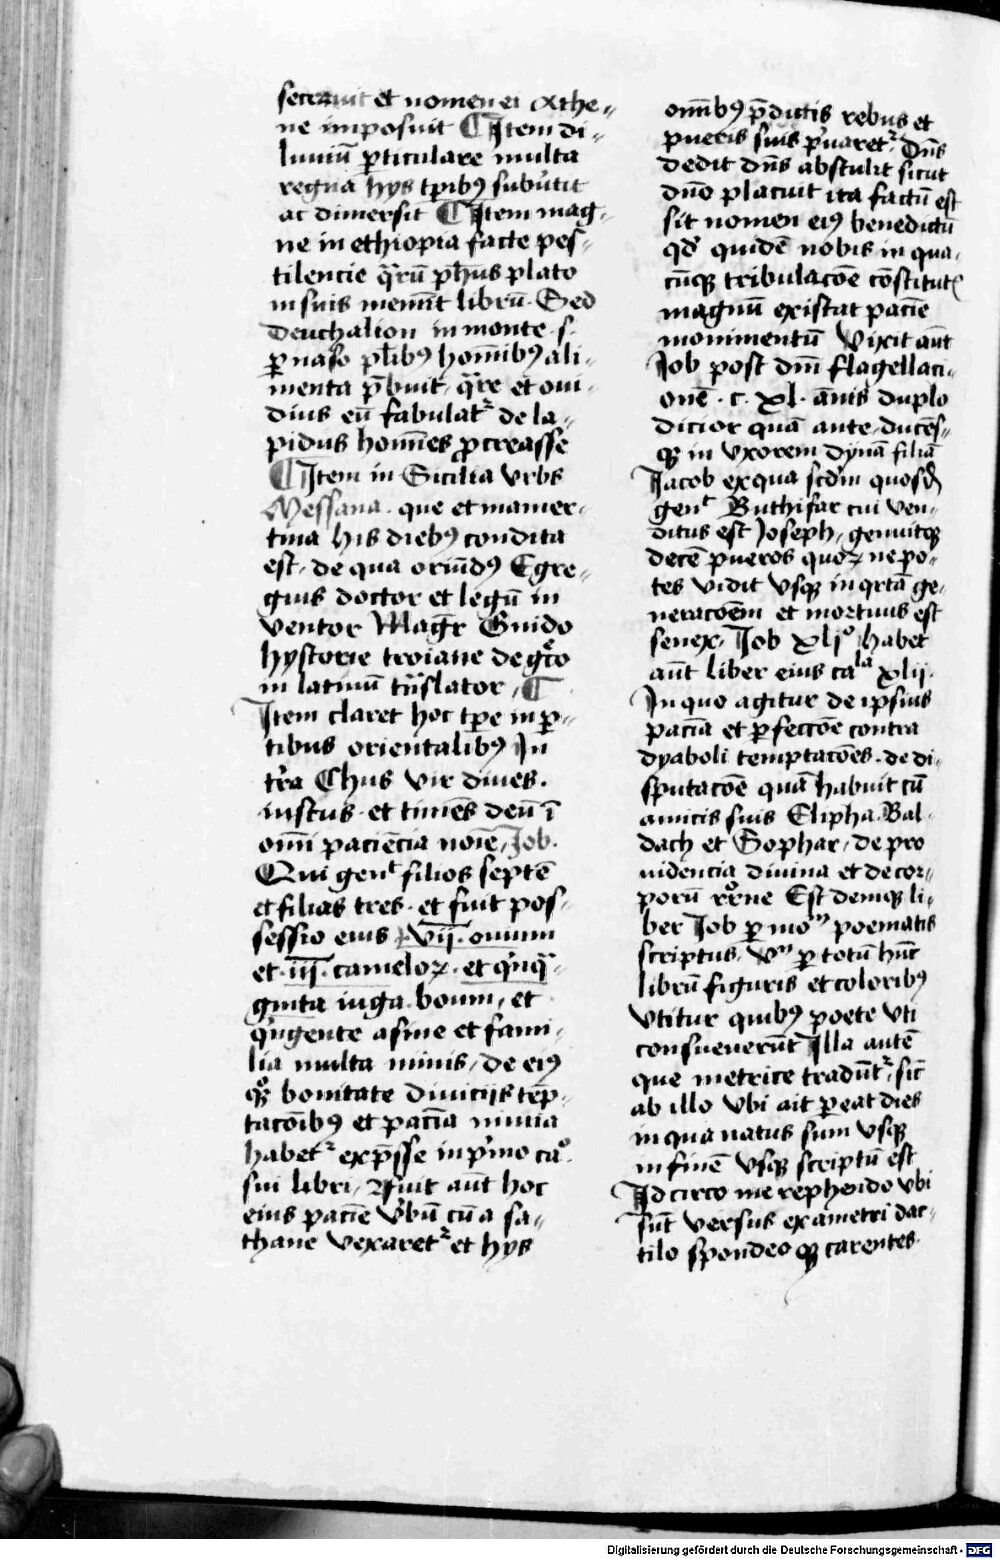 secernit et nomen ei Athe-
ne imposuit ¶ Item di-
luuiū ꝑticulare multa
regna hys tꝑibꝰ subu̾tit
ac dimersit ¶ Item mag-
ne in ethiopia facte pes-
tilencie q̄rū ph̄us plato
in suis memīt librū. Sed
Deuchalion in monte. s.
ꝑnaso pl̄ibꝰ hoīnibꝰ ali-
menta p̄buit. q̄re et oui-
dius eū fabulatᷣ de la-
pidus homīes ꝓcreasse
¶ Item in Sicilia vrbs
Messana. que et mamer-
tina his diebꝰ condita
est. de qua oriūdꝰ Egre-
gius doctor et legū in
ventor Magr̄ Guido
hystorie troiane de gͦco
in latinū tn̄slator, ¶
Item claret hoc tp̄e in ꝑ-
tibus orientalibꝰ In
tr̄a Chus vir diues.
iustus. et timēs deū ī
omī paciēcia noīe, Job.
Qui genͭ filios septē
et filias tres. et fuit pos-
sessio eius .vij̄. ouium
et .iij̄. cameloꝝ. et q̇nq̄-
ginta iuga. boum, et
q̇ngente asine et fami-
lia multa nimis, de eiꝰ
qͦꝫ bonitate diuicijs tēp-
tacōibꝰ et pacīa nimia
habetᷣ exp̄sse in ṗmo caͦ.
sui libri, Fuit aūt hoc
eius pacīe v̾bū cū a sa-
thane vexaretᷣ et hys
om̄ibꝰ p̄dictis rebus et
pueris suis ṗuaretᷣ. Dn̄s
dedit dn̄s abstulit sicut
dn̄o placuit ita factū est
sit nomen eiꝰ benedictū
qd̓ quidē nobis in qua-
cūqꝫ tribulacōe cōstitutꝭ
magnū existat pacīe
monimentū Vixit aūt
Job post dm̄ flagellaci-
onē .c. xl. ānis duplo
dicior quā ante. ducēs-
qꝫ in vxorem dynā filiā
Jacob ex qua scd̓m quosd̄
genͭ Buthifar cui ven-
ditus est Joseph, genuitqꝫ
decē pueros quoꝝ nepo-
tes vidit vsqꝫ in qrtā ge-
neracōem et mortuus est
senex. Job xljͦ habet
aūt liber eius caˡᵃ xlij.
In quo agitur de ipsius
pacīa et ꝑfeccōe contra
dyaboli temptacōes. de di-
sputacōe quā habuit cū
amicis suis Elipha. Bal-
dach et Sophar, de pro
uidencia diuina et de cor-
porū rͬoͦne Est demqꝫ li-
ber Job ꝑ moᵐ poematis
scriptus, Vⁿ ꝑ totū hūc
librū figuris et coloribꝰ
vtitur quibꝰ poete vti
consueuerūt Illa autē
que metrice tradūtᷣ, sic̄
ab illo vbi ait ꝑeat dies
in qua natus sum vsqꝫ
in finē vsqꝫ scriptū est
Idcirco me rephendo vbi
sūt versus exametri dac-
tilo spondeo qꝫ carentes.
Digitalisierung gefördert durch die Deutsche Forschungsgemeinschaft - DFG